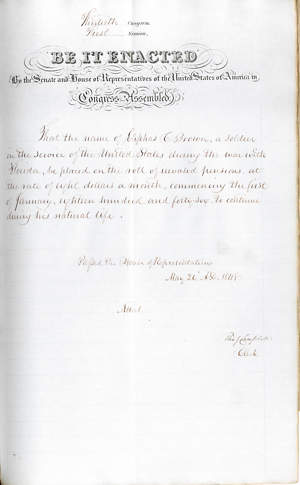 Thirtieth Congress,
First Session,
BE IT ENACTED
By the Senate and House of Representatives of the United States of America in
Congress Assembled
That the name of C. Brown, a soldier
in the service of the United States during the war with
Florida, be placed on the roll of invalid pensions, at
the rate of eight dollars a month, commencing the first
of January, eighteen hundred and forty-six, to continue
during his natural life.
Passed the House of Representatives
May 26 A.D. 1848
Attest
Campbell
Clerk